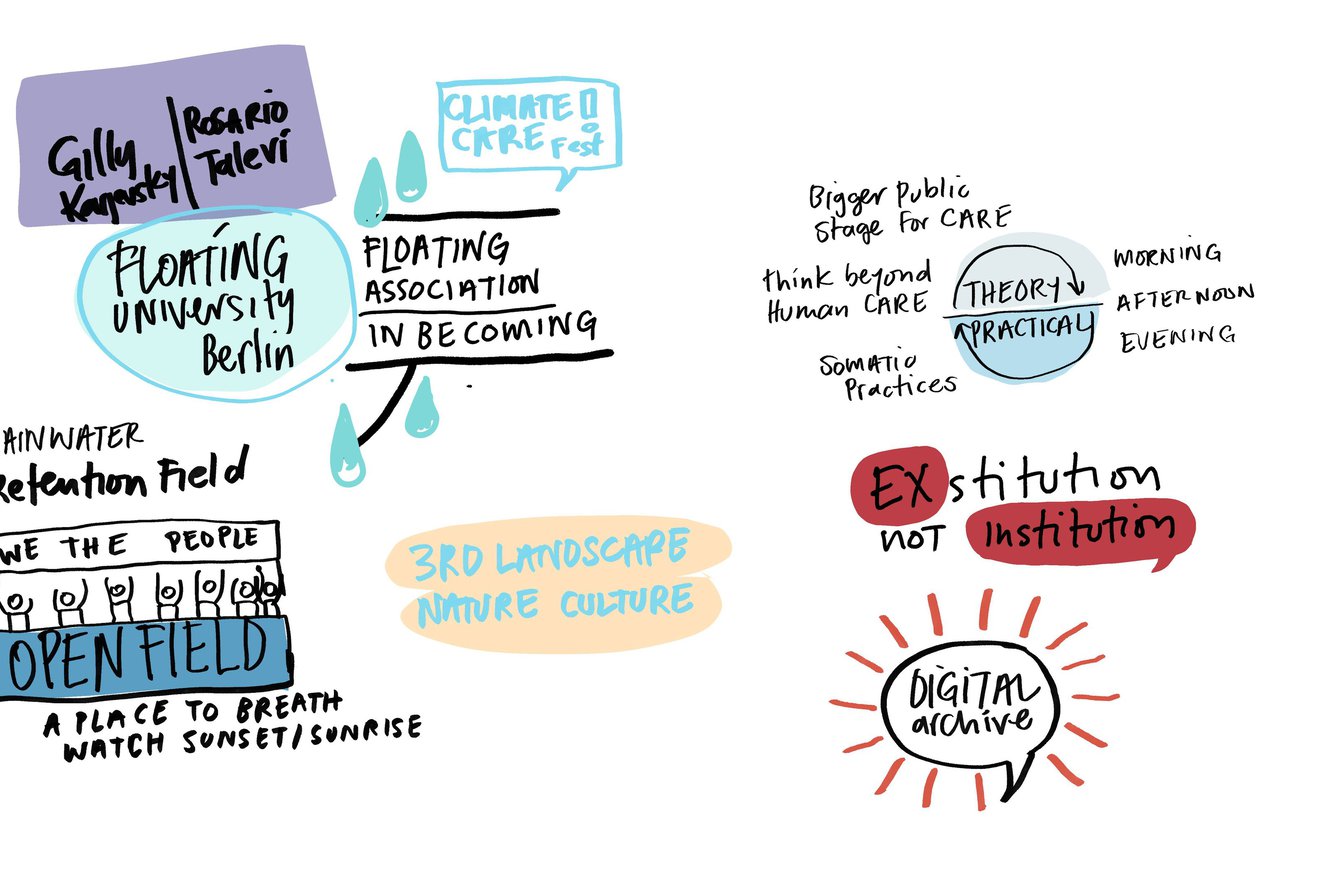 Gilly
Karjevsky
ROSARIO
Talevi
CLIMATE
CARE Fest
FLOATING
UNIVERSITY
Berlin
FLOATING
ASSOCIATION
IN BECOMING
AINWATER
Retention Field
WE THE PEOPLE
OPEN FIELD
A PLACE TO BREATH
WATCH SUNSET/SUNRISE
3RD LANDSCAPE
NATURE CULTURE
Bigger Public
Stage For CARE
think beyond
Human CARE
Somatic
Practices
THEORY
PRACTICAL
MORNING
AFTERNOON
EVENING
EXstitution
NOT institution
DIGITAL
archive